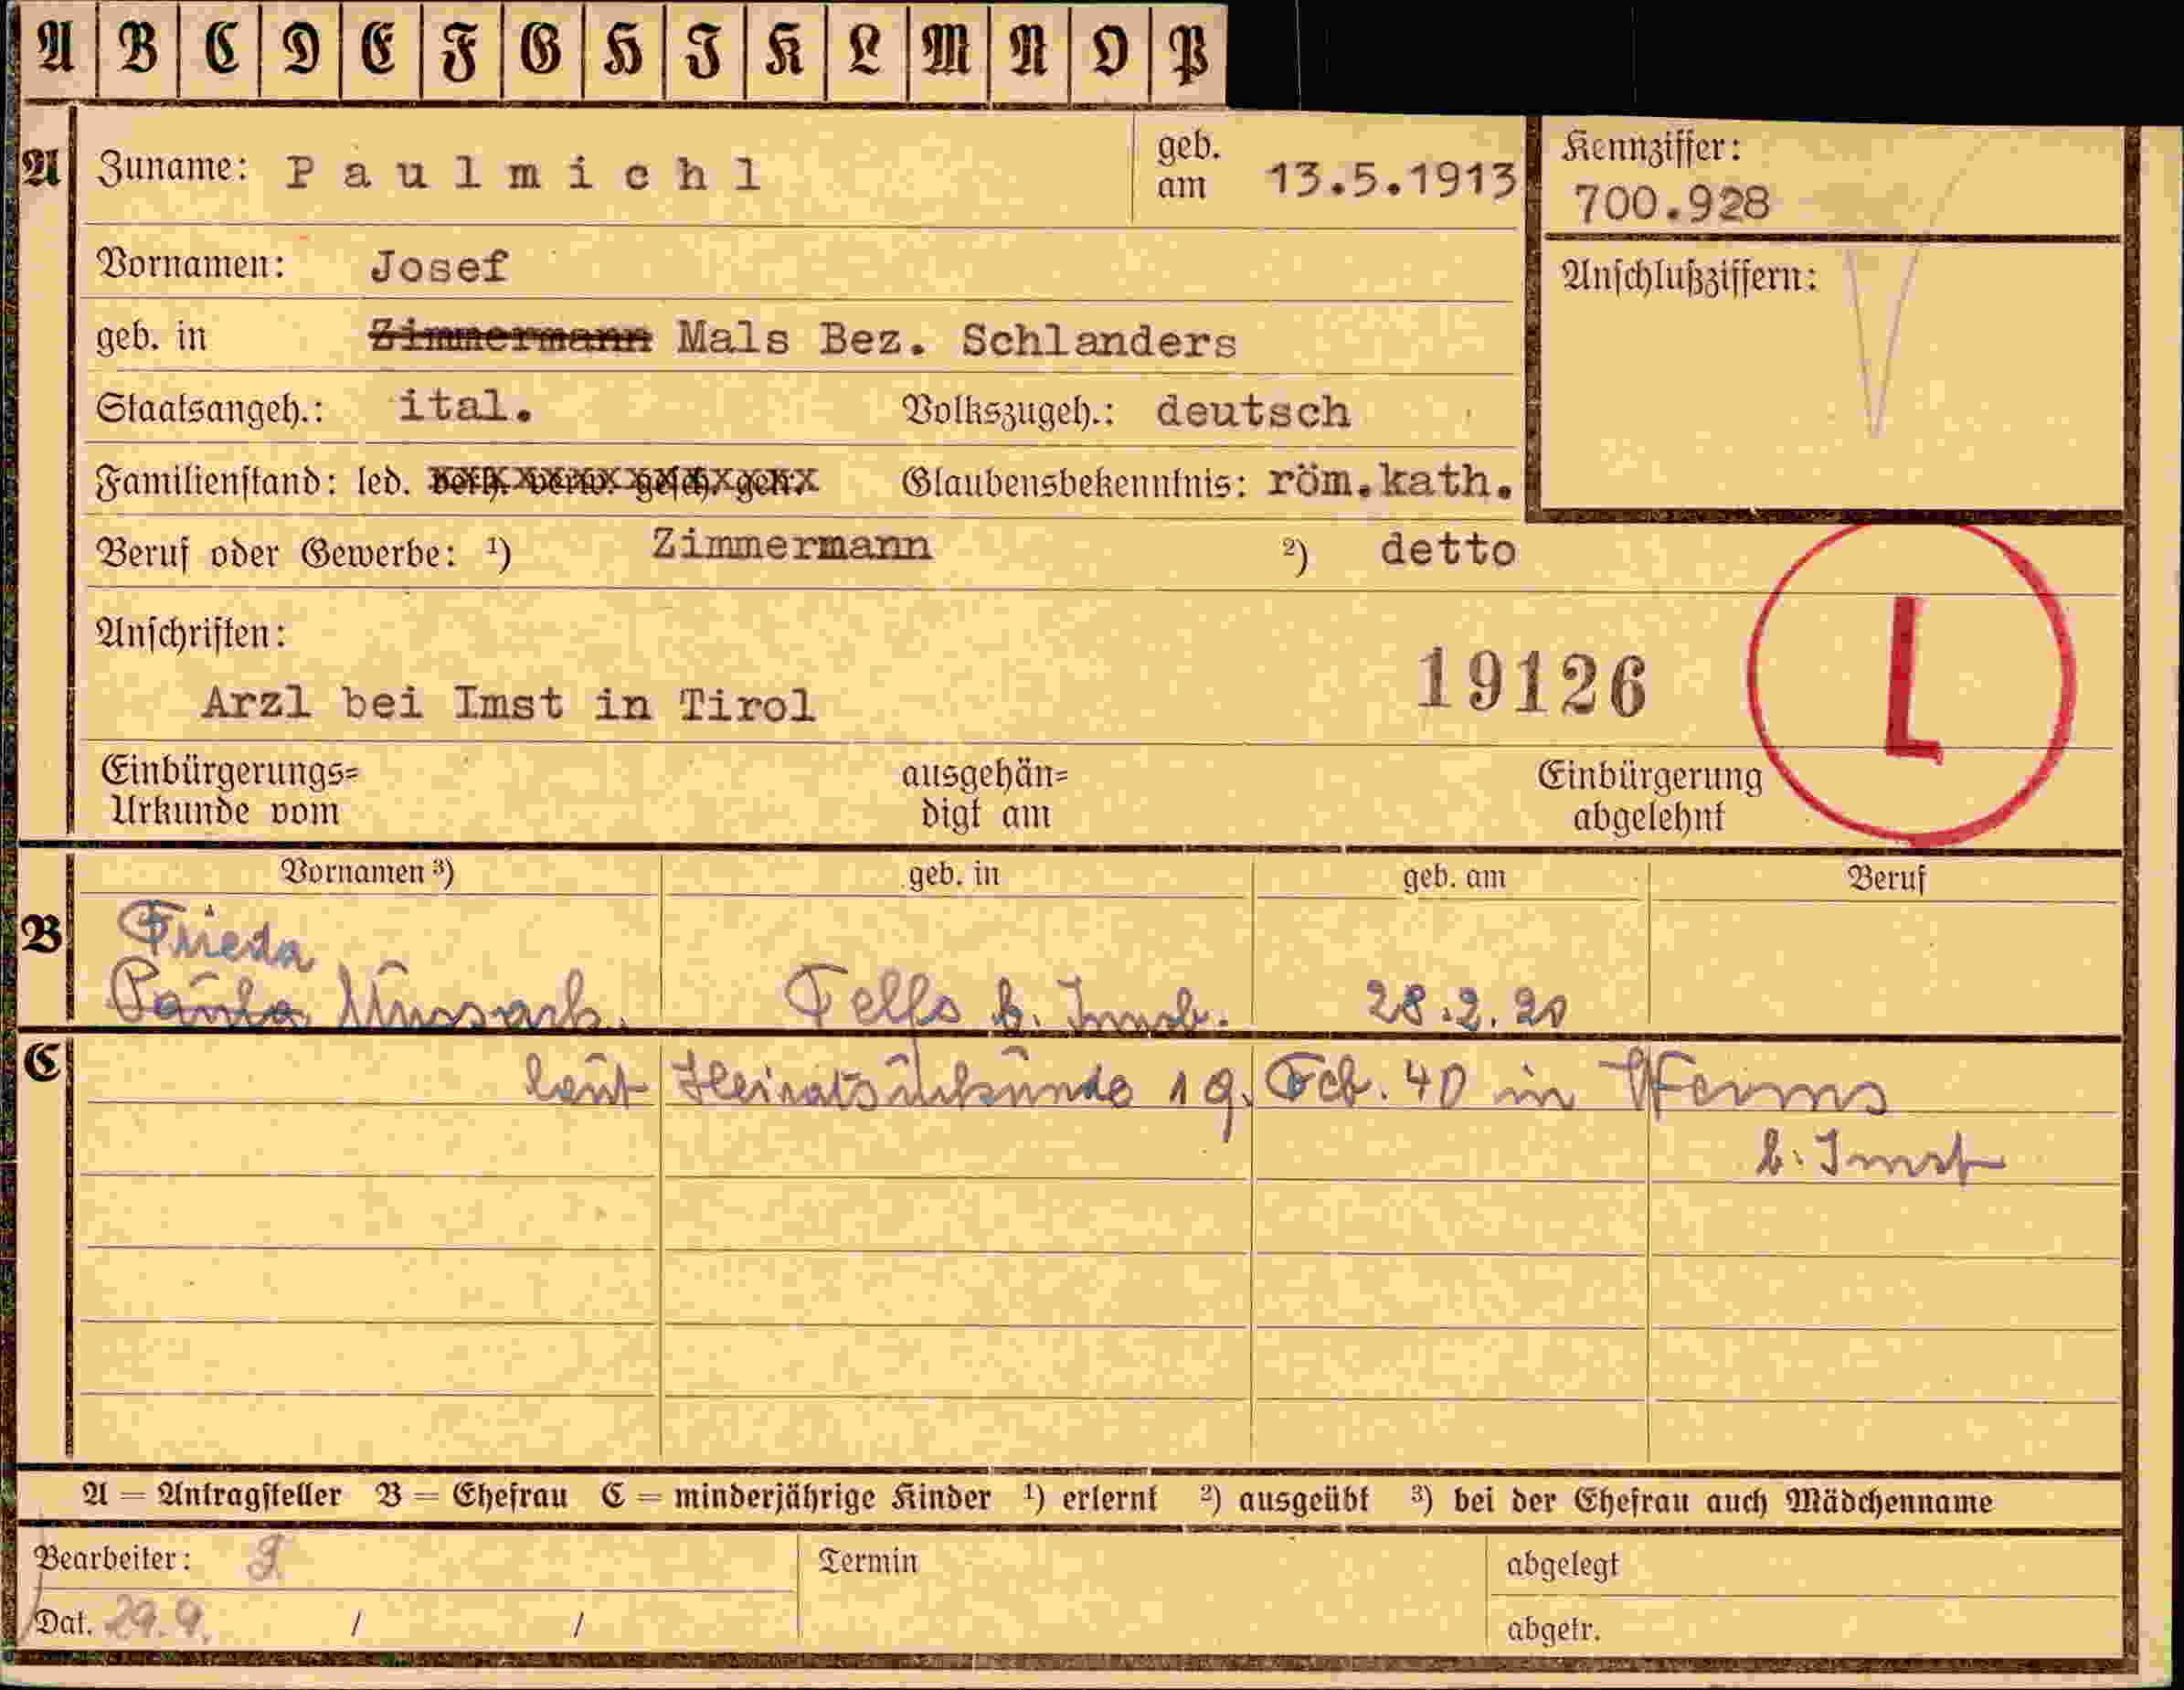 A B C D E F G H I K L M N O P
A Zuname: Paulmichl geb. am 13.5.1913 Kennziffer: 700.928
Vornamen: Josef Anschlußziffern:
geb. in Zimmermann Mals Bez. Schlanders
Staatsangeh.: ital. Volkszugeh.: deutsch
Familienstand: led. verh. verw. gesch. getr. Glaubensbekenntnis: röm.kath.
Beruf oder Gewerbe: ¹) Zimmermann ²) detto
Anschriften:
Arzl bei Imst in Tirol 19126 L
Einbürgerungs= ausgehän= Einbürgerung
Urkunde vom digt am abgelehnt
Vornamen ³) geb. in geb. am Beruf
B Frieda
Paula Nussack. Telfs b. Innsb. 28.2.20
C laut Heiratsurkunde 19. Feb. 40 in Wenns
b. Imst
A = Antragsteller B = Ehefrau C = minderjährige Kinder ¹) erlernt ²) ausgeübt ³) bei der Ehefrau auch Mädchenname
Bearbeiter: Termin abgelegt
Dat. 29.9. / / abgetr.